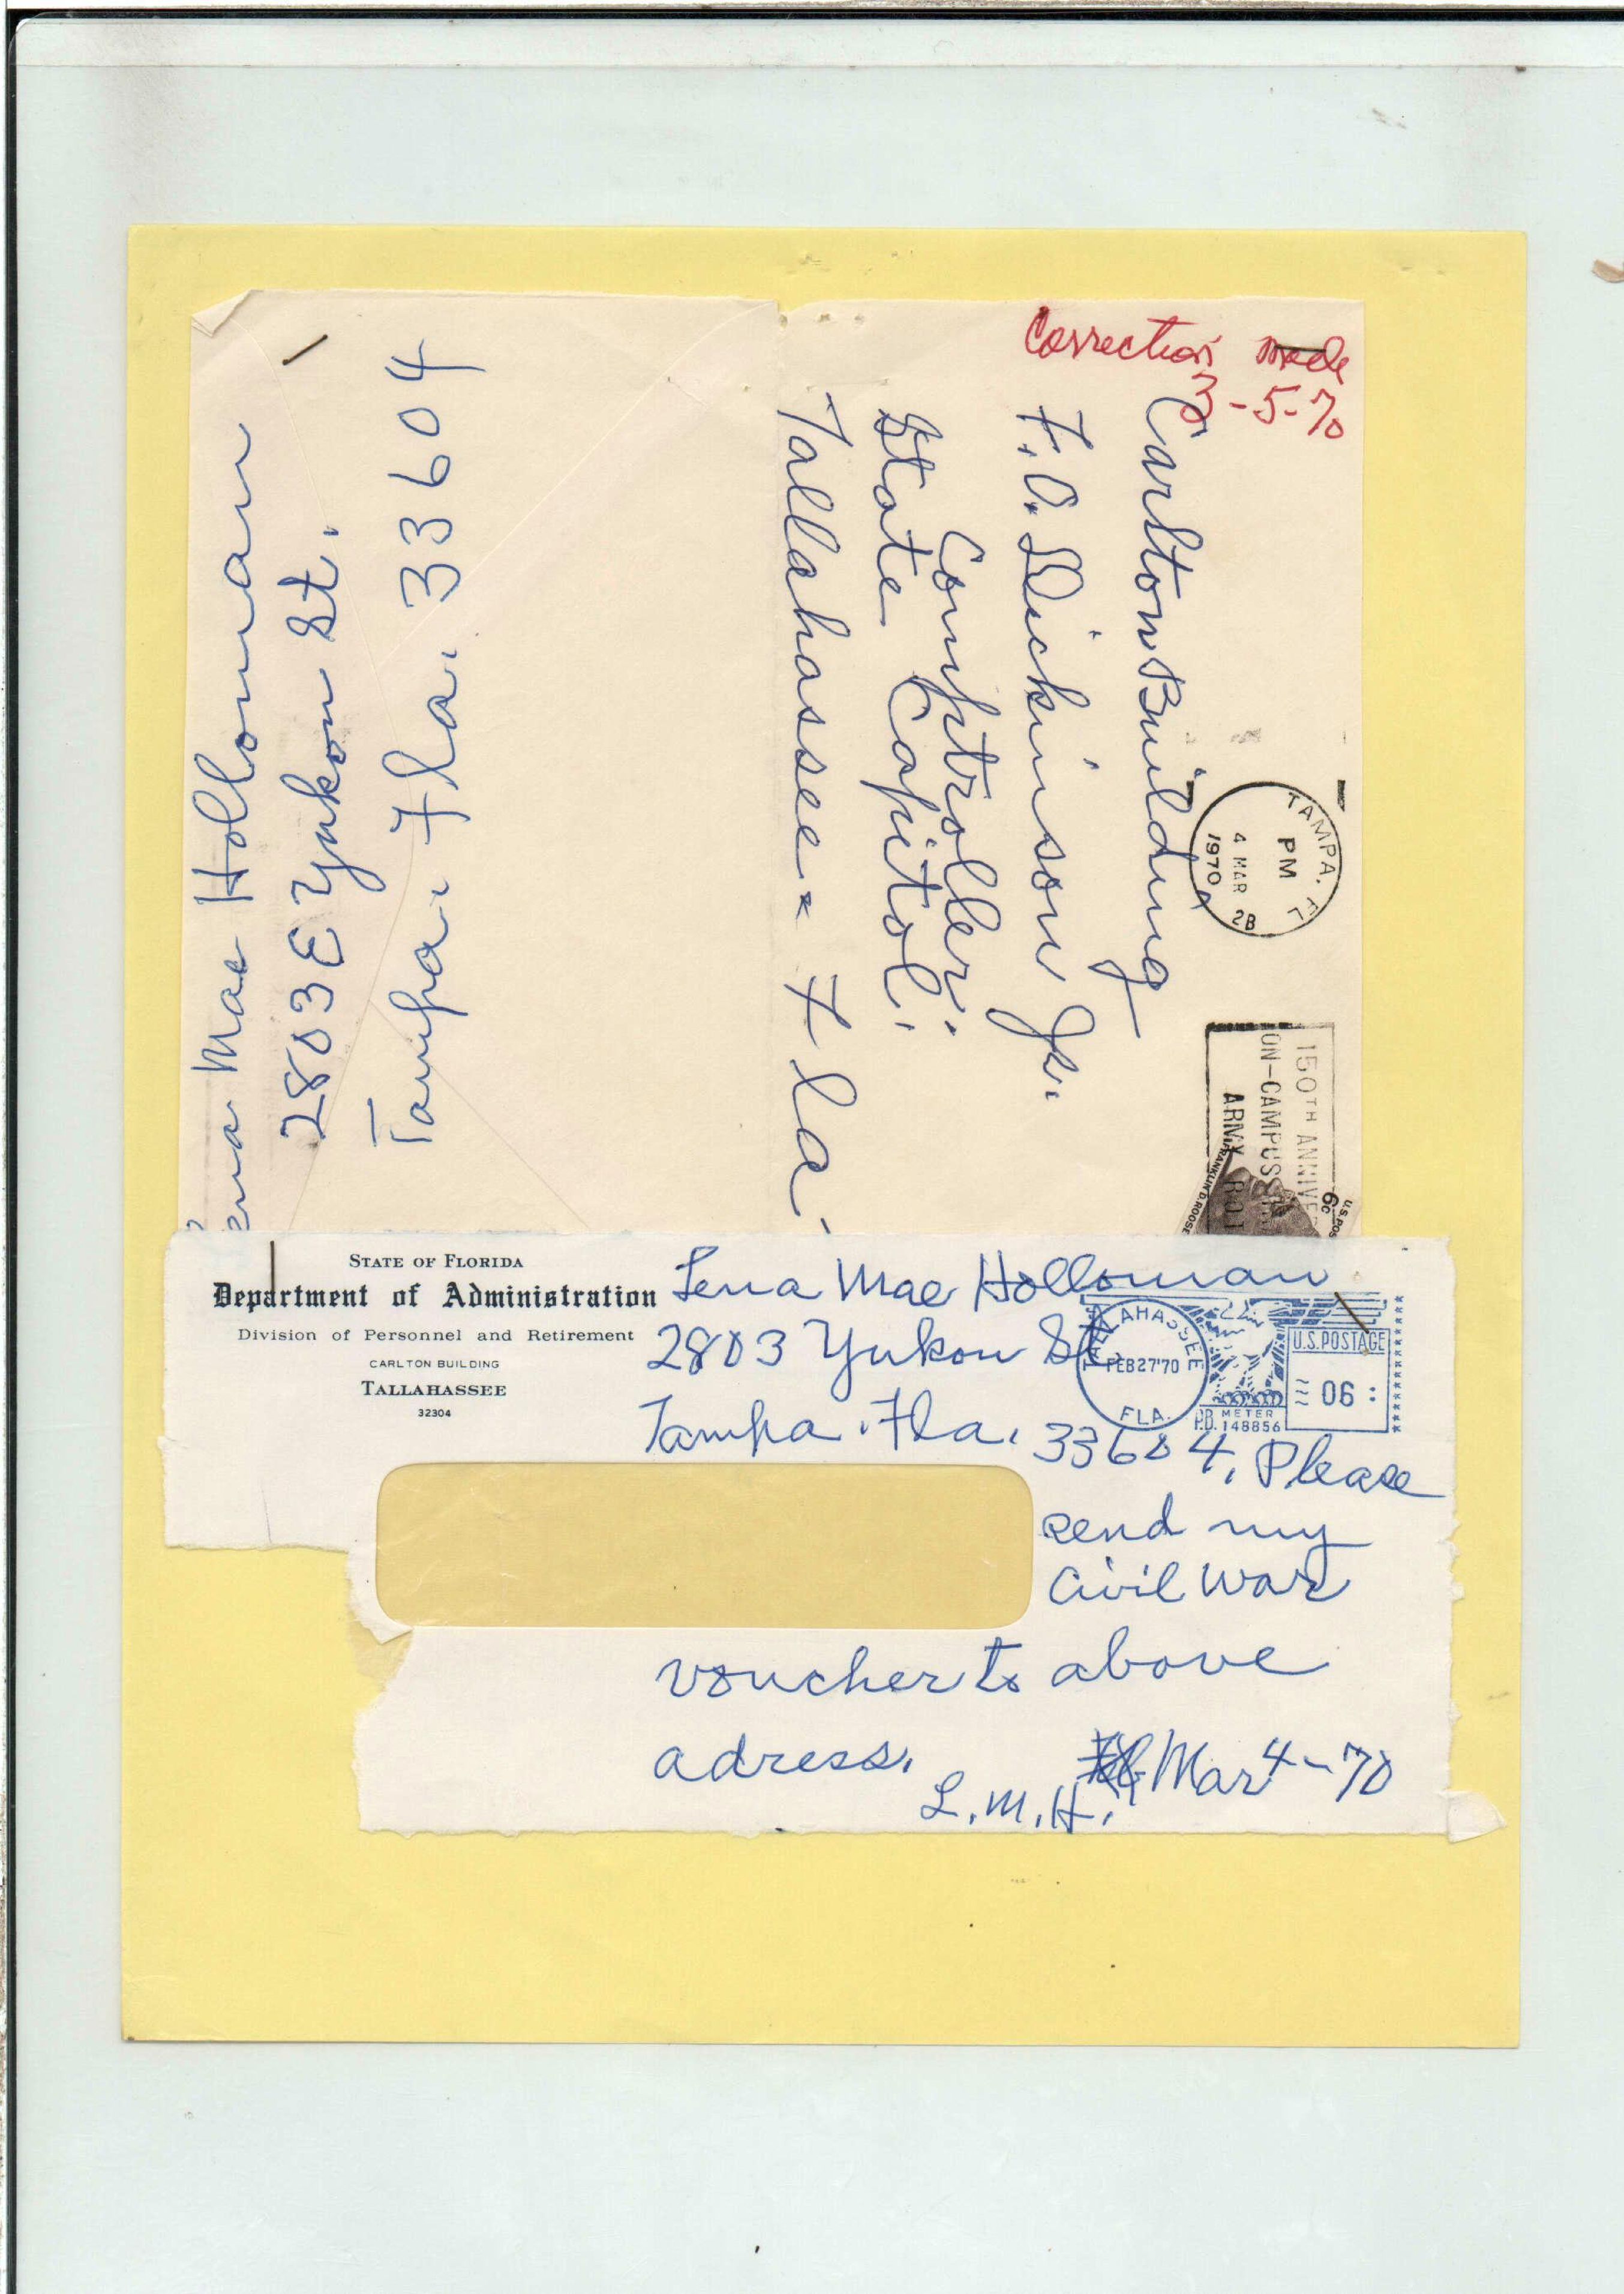 Correction made
3-5-70
Carlton Building
F. O. Dickinson Jr.
Comptroller.
State Capitol.
Tallahassee - Fla.
TAMPA. FL
PM
4 MAR
1970
2B
150TH ANNIVE
ON-CAMPUS
ARMY RO
FRANKLIN D. ROOSE
6c
U.S. POS
ena Mae Holloman
2803 E Yukon St.
Tampa. Fla. 33604
STATE OF FLORIDA
Department of Administration
Division of Personnel and Retirement
CARLTON BUILDING
TALLAHASSEE
32304
Lena Mae Holloman
2803 Yukon St.
Tampa. Fla. 33604, Please
send my
Civil War
voucher to above
adress.
Mar 4-70
L.M.H.
TALLAHASSEE
FEB27'70
FLA.
U.S.POSTAGE
06
P.B. METER
148856